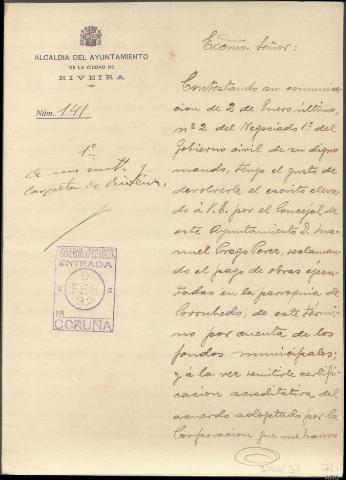 ALCALDIA DEL AYUNTAMIENTO
DE LA CIUDAD DE
RIVEIRA
Núm. 141
1º
Carpeta de
ENTRADA
9
FEB
32
CORUÑA
Excmo. Señor:
Contestando su comuni-
cacion de 2 de Enero último,
nº 2 del Negociado 1º del
Gobierno civil de su digno
mando, tengo el gusto de
devolverle el escrito eleva-
do á V.E. por el Concejal de
este Ayuntamiento D. Ma-
nuel Prego Perez, reclaman-
do el pago de obras ejecu-
tadas en la parroquia de
Corrubedo, de este térmi-
no por cuenta de los
fondos municipales;
y á la vez remitirle certifi-
cacion acreditativa del
acuerdo adoptado por la
Corporacion que me honro